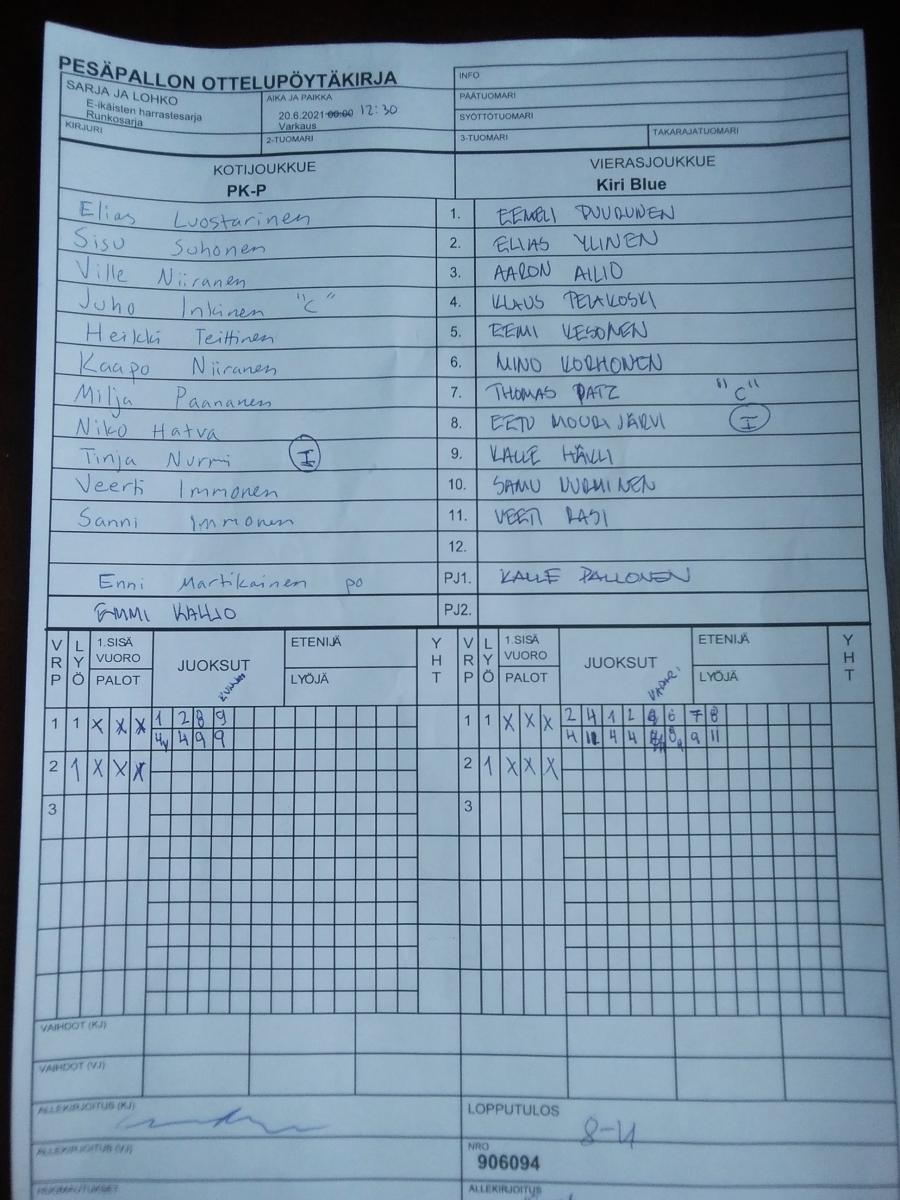 PESÄPALLON OTTELUPÖYTÄKIRJA
SARJA JA LOHKO
E-ikäisten harrastesarja
Runkosarja
KIRJURI
AIKA JA PAIKKA
20.6.2021 00:00 12:30
Varkaus
2-TUOMARI
INFO
PÄÄTUOMARI
SYÖTTÖTUOMARI
3-TUOMARI
TAKARAJATUOMARI
KOTIJOUKKUE
PK-P
VIERASJOUKKUE
Kiri Blue
Elias Luostarinen 1. EEMELI PUURUNEN
Sisu Suhonen 2. ELIAS YLINEN
Ville Niiranen 3. AARON AILIO
Juho Inkinen "C" 4. KLAUS PELAKOSKI
Heikki Teittinen 5. EEMI KESONEN
Kaapo Niiranen 6. NINO KORHONEN
Milja Paananen 7. THOMAS PATZ "C"
Niko Hatva 8. EETU MOURUJÄRVI I
Tinja Nurmi I 9. KALLE
Veerti Immonen 10. SAMU NURMINEN
Sanni Immonen 11. VEETI RASI
12.
Enni Martikainen po PJ1. KALLE PALLONEN
EMMI KALLIO PJ2.
VRP LYÖ 1.SISÄ VUORO PALOT JUOKSUT ETENIJÄ LYÖJÄ YHT
VRP LYÖ 1.SISÄ VUORO PALOT JUOKSUT ETENIJÄ LYÖJÄ YHT
1 1 X X X 1 2 8 9
4 4 9 9
2 1 X X X
3
1 1 X X X 2 4 1 2 6 7 8
4 11 4 4 8 9 11
2 1 X X X
3
VAIHDOT (KJ)
VAIHDOT (VJ)
ALLEKIRJOITUS (KJ)
ALLEKIRJOITUS (VJ)
LOPPUTULOS
8-11
NRO
906094
ALLEKIRJOITUS